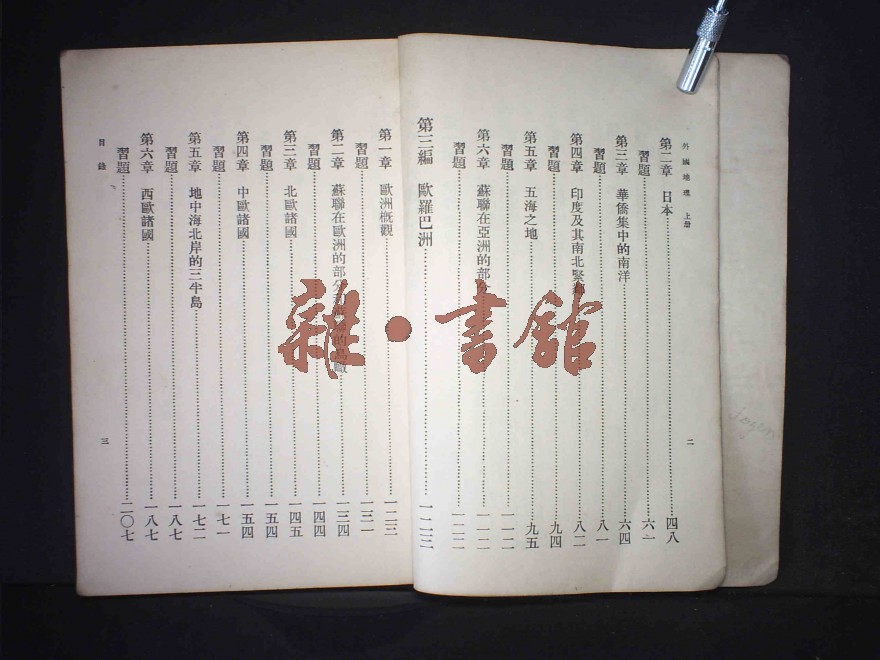 外國地理 上册
二
第二章 日本 四八
習題 六一
第三章 華僑集中的南洋 六四
習題 八一
第四章 印度及其南北緊鄰 八二
習題 九四
第五章 五海之地 九五
習題 一一二
第六章 蘇聯在亞洲的部分 一一二
習題 一二二
第三編 歐羅巴洲 一二三
第一章 歐洲概觀 一二三
習題 一三一
第二章 蘇聯在歐洲的部分 一三四
習題 一四四
第三章 北歐諸國 一四五
習題 一五四
第四章 中歐諸國 一五四
習題 一七一
第五章 地中海北岸的三半島 一七二
習題 一八七
第六章 西歐諸國 一八七
習題 二〇七
目錄
三
雜·書館